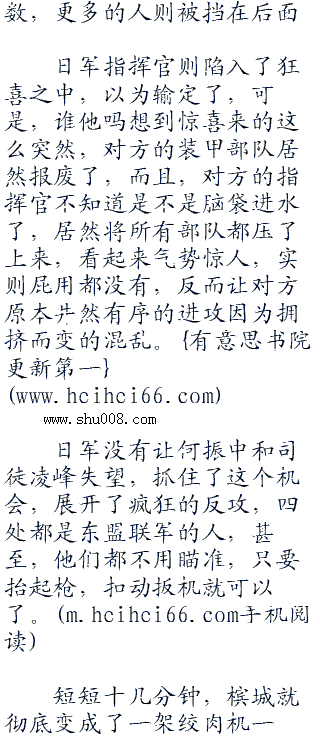 数，更多的人则被挡在后面
日军指挥官则陷入了狂
喜之中，以为输定了，可
是，谁他吗想到惊喜来的这
么突然，对方的装甲部队居
然报废了，而且，对方的指
挥官不知道是不是脑袋进水
了，居然将所有部队都压了
上来，看起来气势惊人，实
则屁用都没有，反而让对方
原本井然有序的进攻因为拥
挤而变的混乱。{有意思书院
更新第一}
(www.hcihci66.com)
www.shu008.com
日军没有让何振中和司
徒凌峰失望，抓住了这个机
会，展开了疯狂的反攻，四
处都是东盟联军的人，甚
至，他们都不用瞄准，只要
抬起枪，扣动扳机就可以
了。(m.hcihci66.com手机阅
读)
短短十几分钟，槟城就
彻底变成了一架绞肉机一